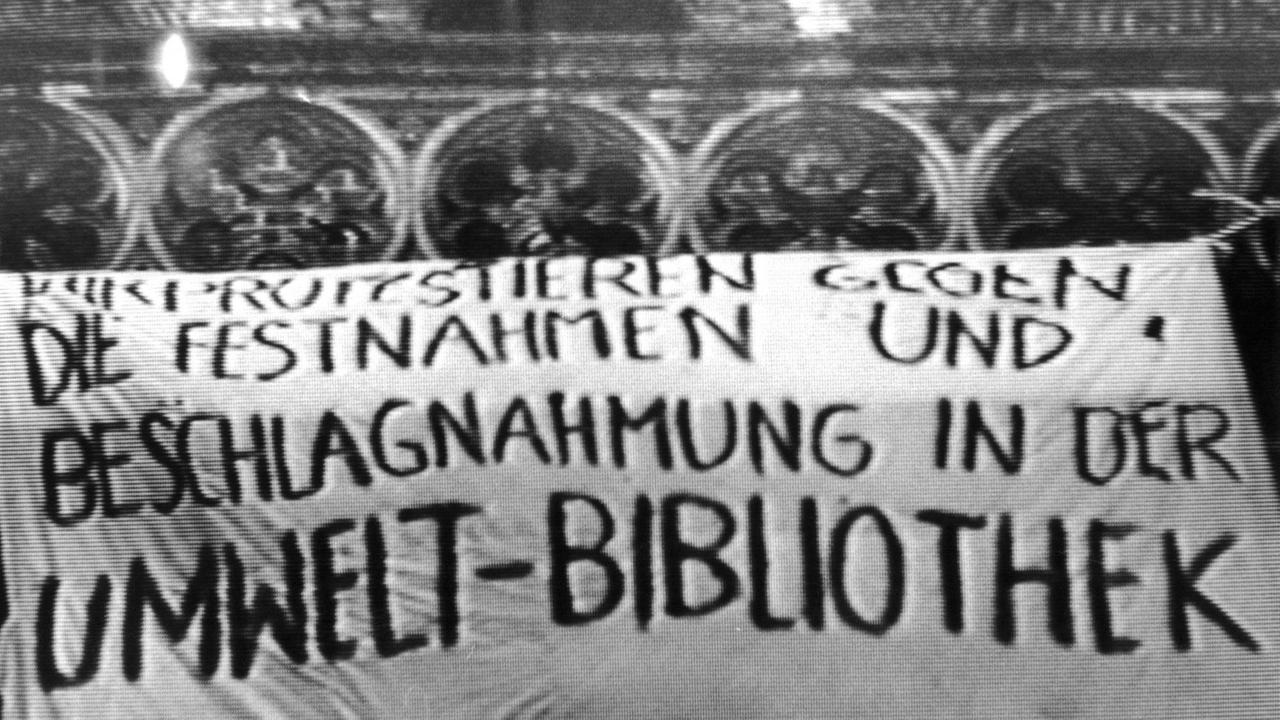 WIR PROTESTIEREN GEGEN
DIE FESTNAHMEN UND
BESCHLAGNAHMUNG IN DER
UMWELT-BIBLIOTHEK